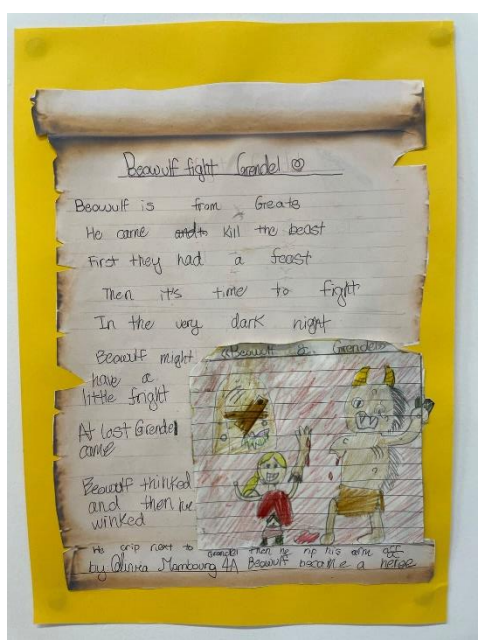 Beowulf fight Grendel
Beowulf is from Greats
He came and to kill the beast
First they had a feast
Then it's time to fight
In the very dark night
Beowulf might
have a
little fright
Beowulf & Grendel
At last Grendel
came
Beowulf thinked
and then he
winked
His grip next to Grendel then he rip his arm off
by Olivia 4A Beowulf became a heroe